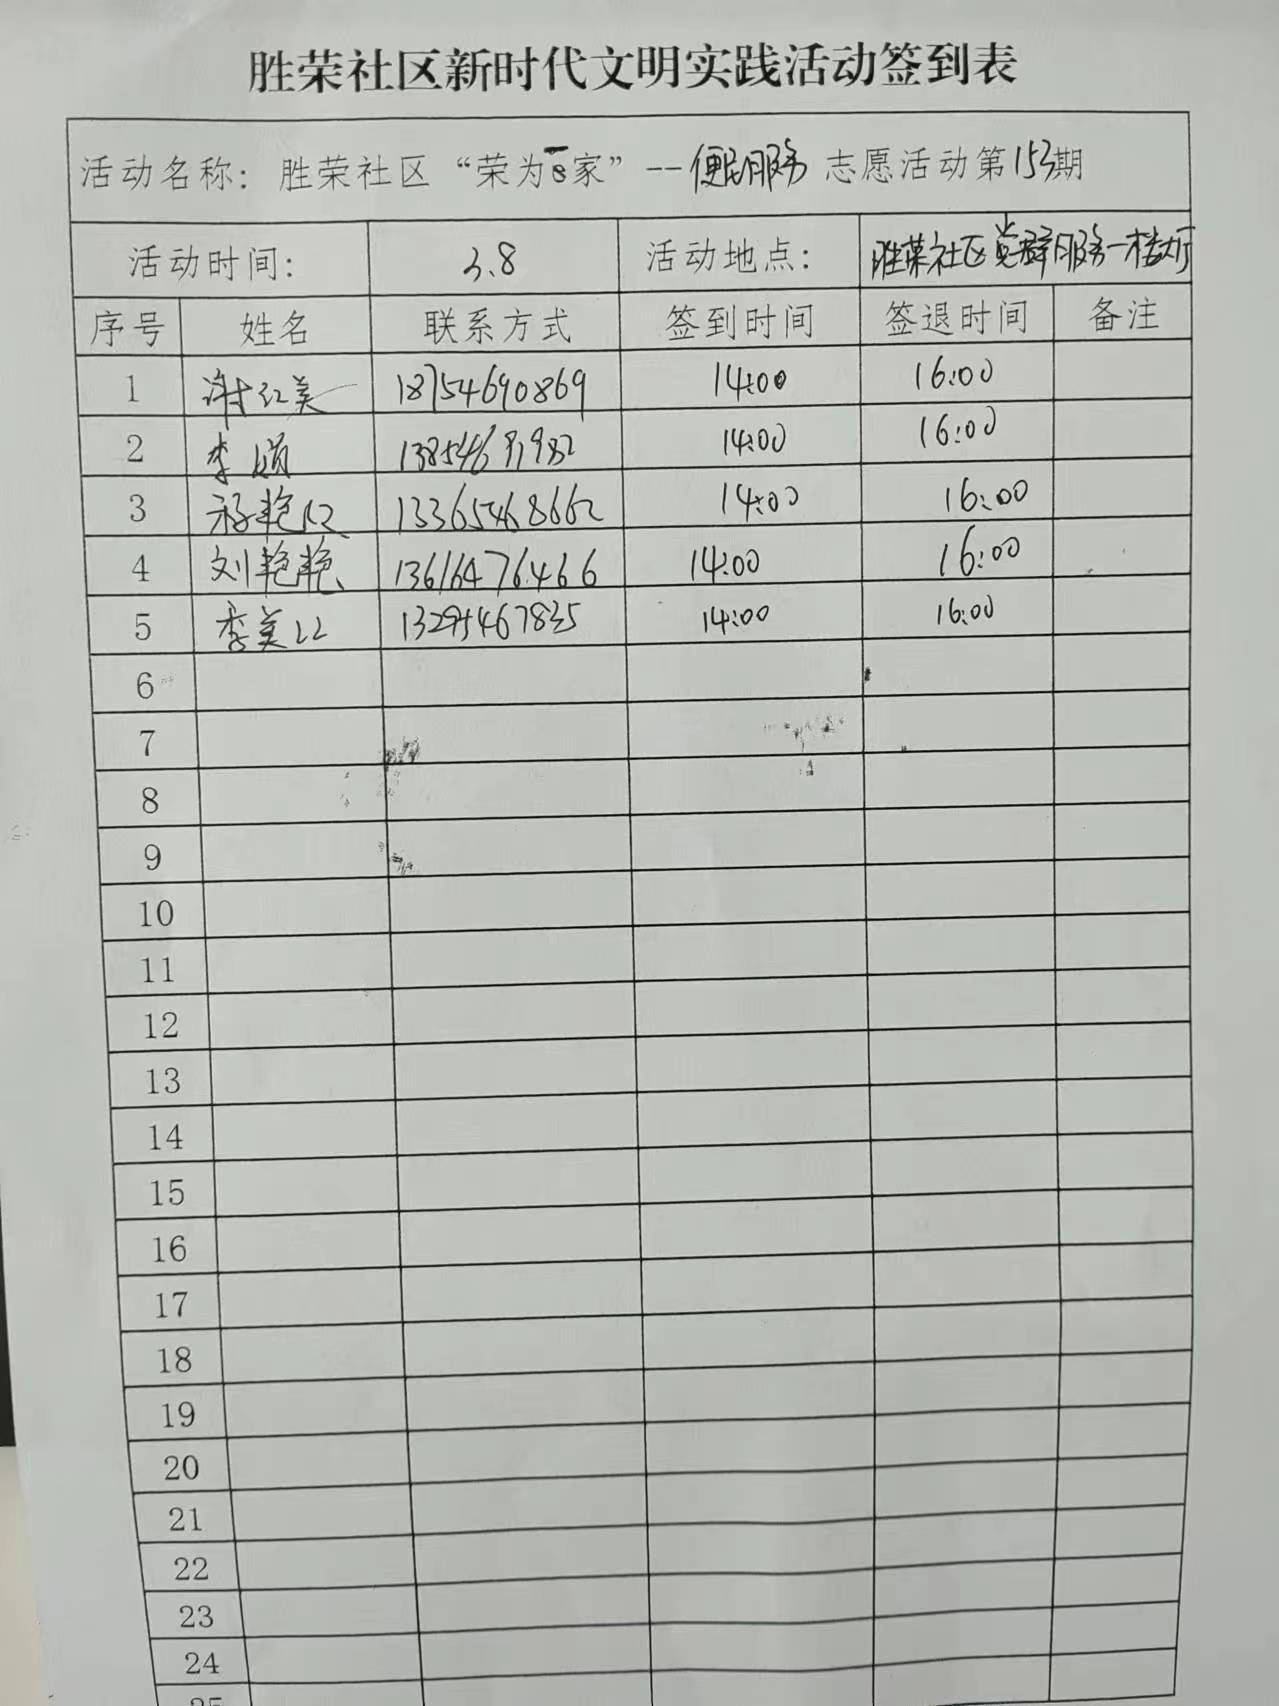 胜荣社区新时代文明实践活动签到表
活动名称：胜荣社区“荣为一家”--便民服务 志愿活动第153期
活动时间： 3.8 活动地点： 胜荣社区党群服务一楼大厅
序号 姓名 联系方式 签到时间 签退时间 备注
1 谢红美 18754690869 14:00 16:00
2 李娟 14:00 16:00
3 13365468662 14:00 16:00
4 刘艳艳 13616476466 14:00 16:00
5 李美江 13295467835 14:00 16:00
6
7
8
9
10
11
12
13
14
15
16
17
18
19
20
21
22
23
24
25